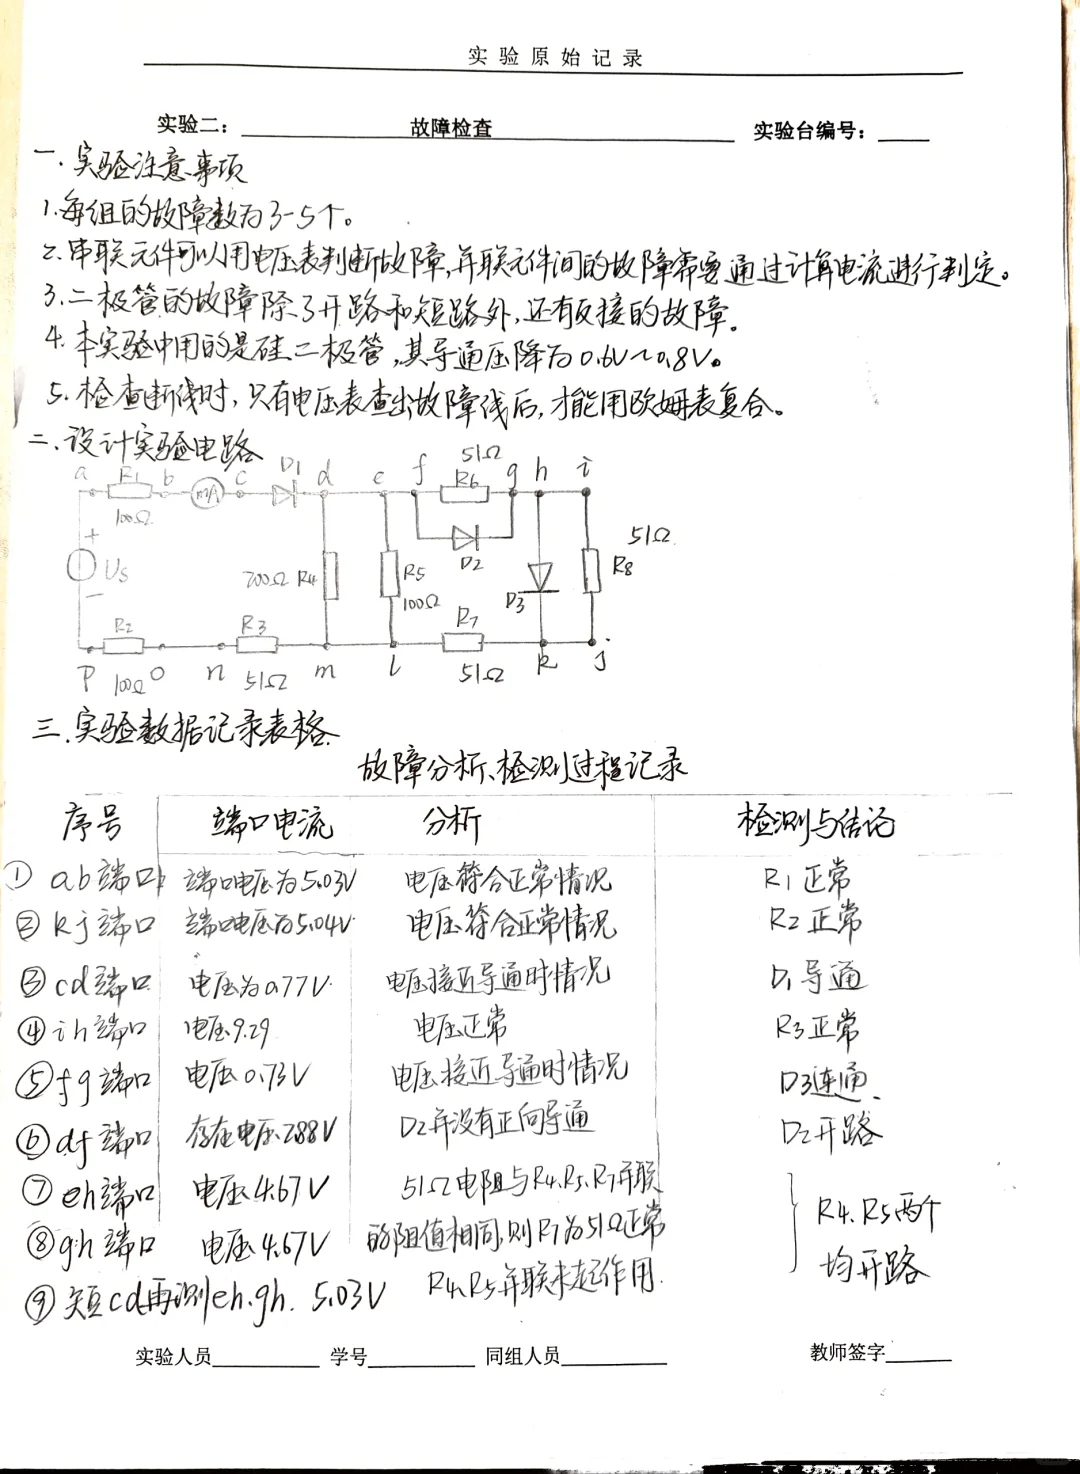 实验原始记录
实验二： 故障检查 实验台编号：
一.实验注意事项
1.每组的故障数为3-5个。
2.串联元件可以用电压表判断故障,并联元件间的故障需要通过计算电流进行判定。
3.二极管的故障除了开路和短路外,还有反接的故障。
4.本实验中用的是硅二极管,其导通压降为0.6V~0.8V。
5.检查断线时,只有电压表查出故障线后,才能用欧姆表复合。
二.设计实验电路
a R1 b mA c D1 d e f 51Ω R6 g h i
100Ω
+ Us -
200Ω R4 R5 100Ω D2 D3 R8 51Ω
R2 R3 R7
p 100Ω o n 51Ω m l 51Ω k j
三.实验数据记录表格
故障分析、检测过程记录
序号 端口电流 分析 检测与结论
① ab端口 端口电压为5.03V 电压符合正常情况 R1正常
② kj端口 端口电压为5.04V 电压符合正常情况 R2正常
③ cd端口 电压为0.77V 电压接近导通时情况 D1导通
④ ih端口 电压9.29 电压正常 R3正常
⑤ fg端口 电压0.73V 电压接近导通时情况 D3连通
⑥ df端口 存在电压2.88V D2并没有正向导通 D2开路
⑦ eh端口 电压4.67V 51Ω电阻与R4.R5.R7并联
⑧ gh端口 电压4.67V 的阻值相同,则R7为51Ω正常 R4.R5两个
⑨ 短cd再测eh.gh. 5.03V R4.R5并联未起作用. 均开路
实验人员 学号 同组人员 教师签字